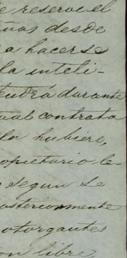 e reserve el
ñas desde
a hacerse
la inteli-
tendrá durante
ual contrata
la hubiere,
opietario le
o segun se
osteriormente
otorgantes
on libre